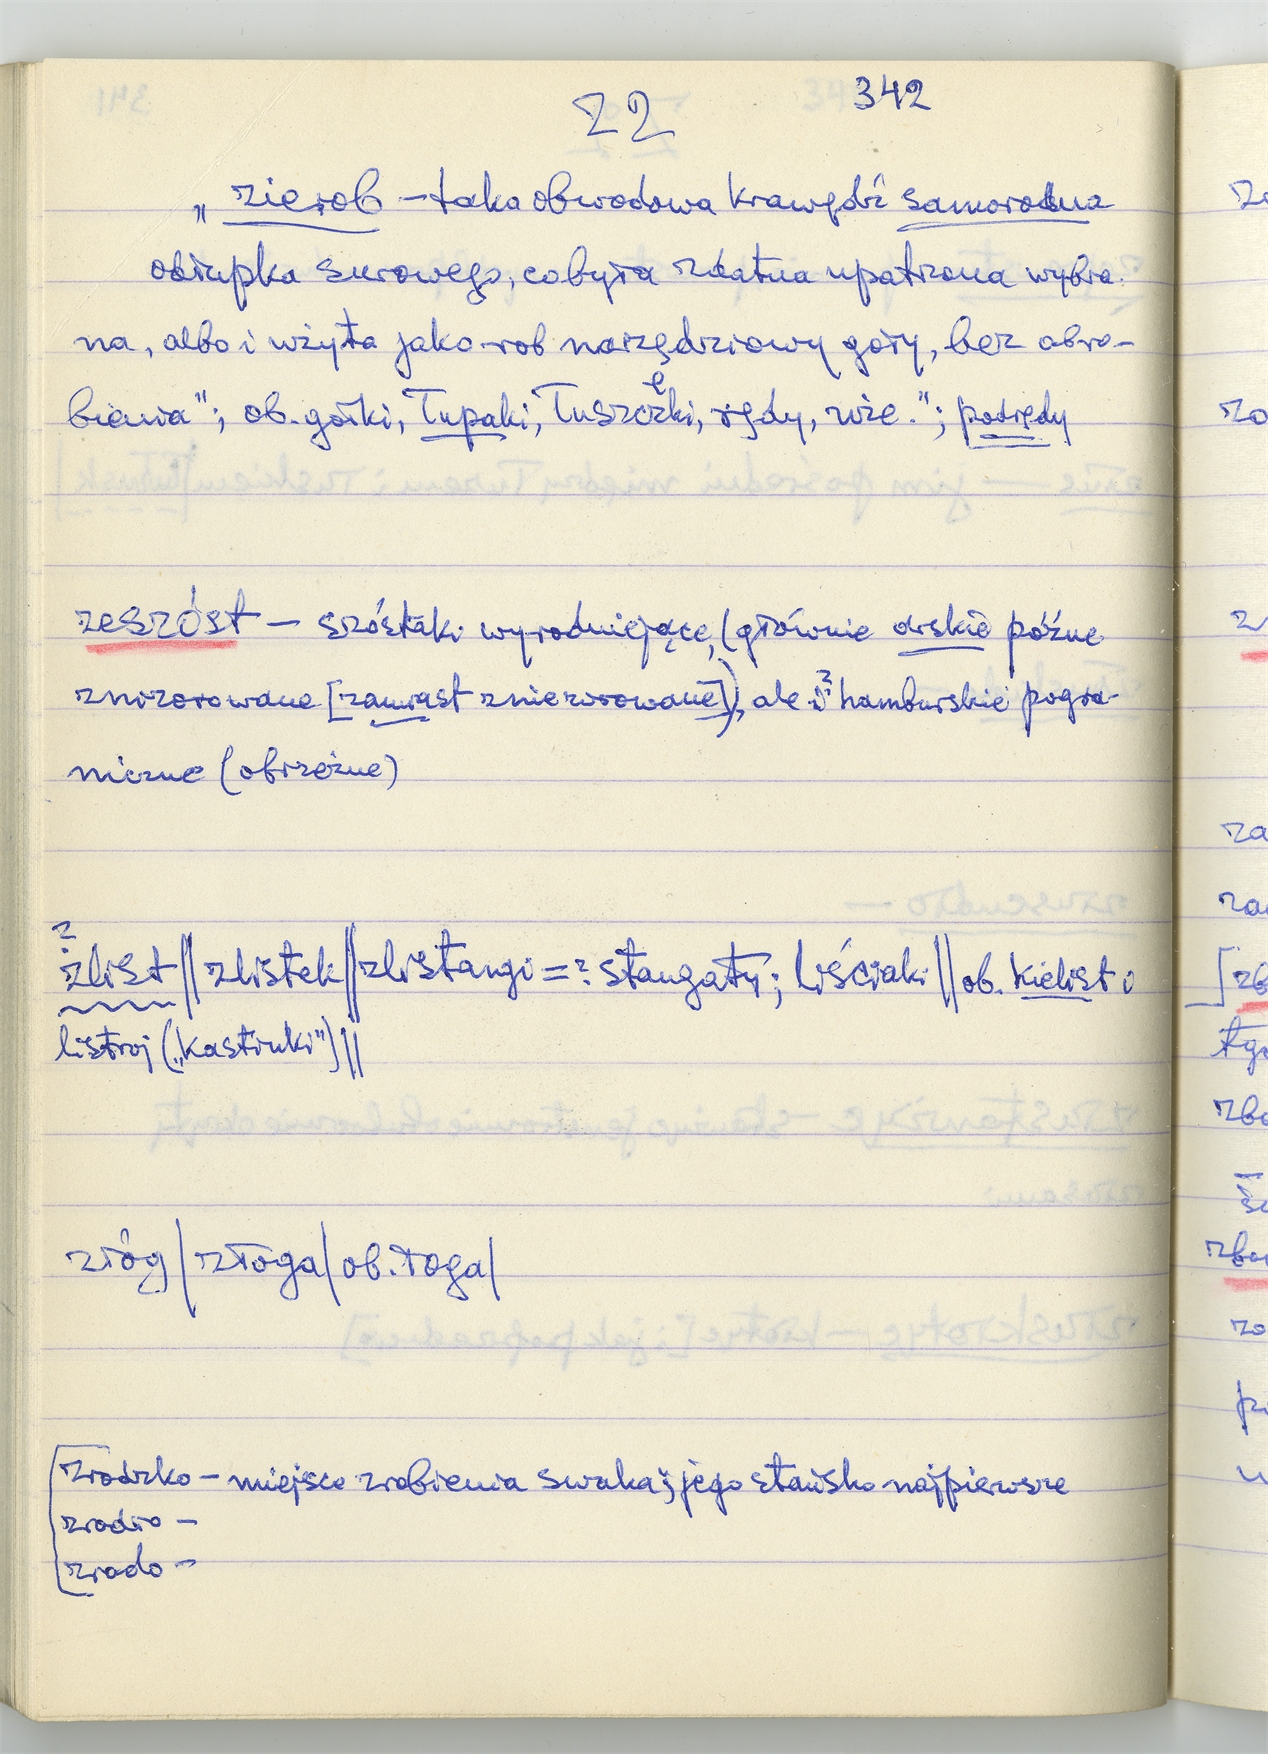 Z2 342
„zierob – taka obwodowa krawędź samorodna
obłupka surowego, co była zdatna upatrzona wybra-
na, albo i wżyta jako rob narzędziowy goły, bez obro-
bienia"; ob. gołki, łupaki, łuszczki, rzędy, wie."; podrzędy
e
zeszóst – szóstaki wyrodniejące, (głównie arskie późne
znizorowane [zamiast zniezorowane]), ale i? hamburskie pogra-
niczne (obrzeżne)
?
zlist || zlistek || zlistangi = ? stangaty; liściaki || ob. kielist i
listroj („kastinki") ||
złóg | złoga | ob. łoga |
zrodzko – miejsce zrobienia swaka; jego stańsko najpierwsze
zrodło –
zrodo –